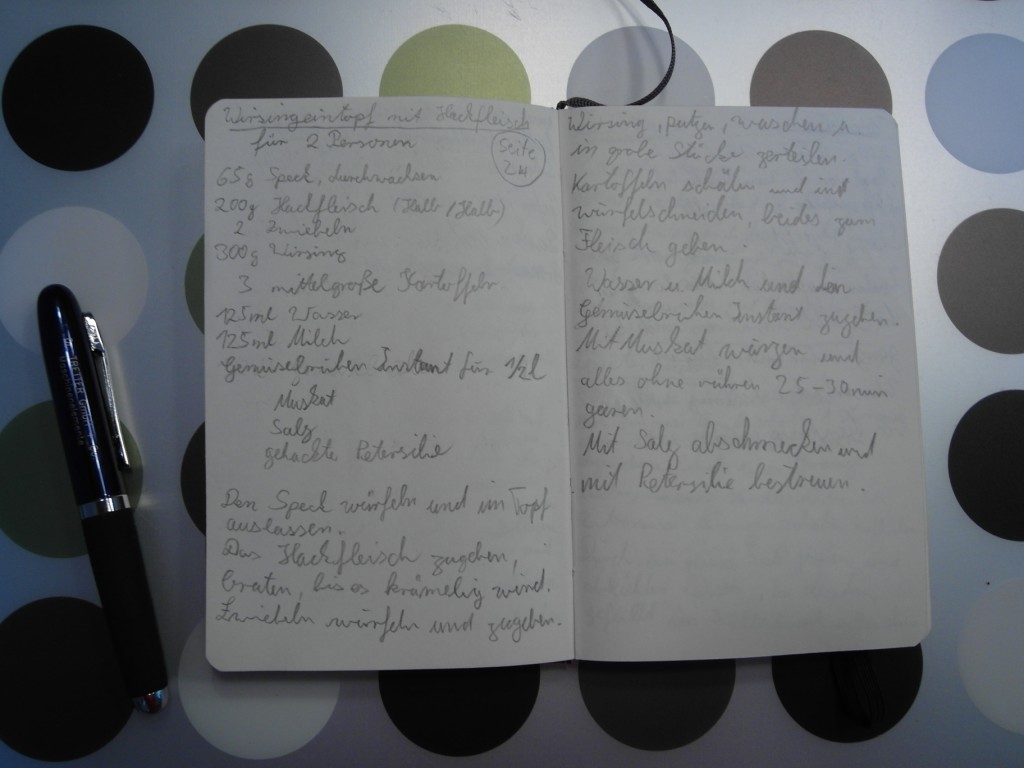 Wirsingeintopf mit Hackfleisch
für 2 Personen
Seite
24
65g Speck, durchwachsen
200g Hackfleisch (Halb/Halb)
2 Zwiebeln
300g Wirsing
3 mittelgroße Kartoffeln
125ml Wasser
125ml Milch
Gemüsebrühen Instant für 1/2 l
Muskat
Salz
gehackte Petersilie
Den Speck würfeln und im Topf
auslassen.
Das Hackfleisch zugeben,
braten, bis es krümelig wird.
Zwiebeln würfeln und zugeben.
Wirsing, putzen, waschen u.
in grobe Stücke zerteilen.
Kartoffeln schälen und in
würfelschneiden, beides zum
Fleisch geben.
Wasser u. Milch und den
Gemüsebrühen Instant zugeben.
Mit Muskat würzen und
alles ohne rühren 25-30min
garen.
Mit Salz abschmecken und
mit Petersilie bestreuen.